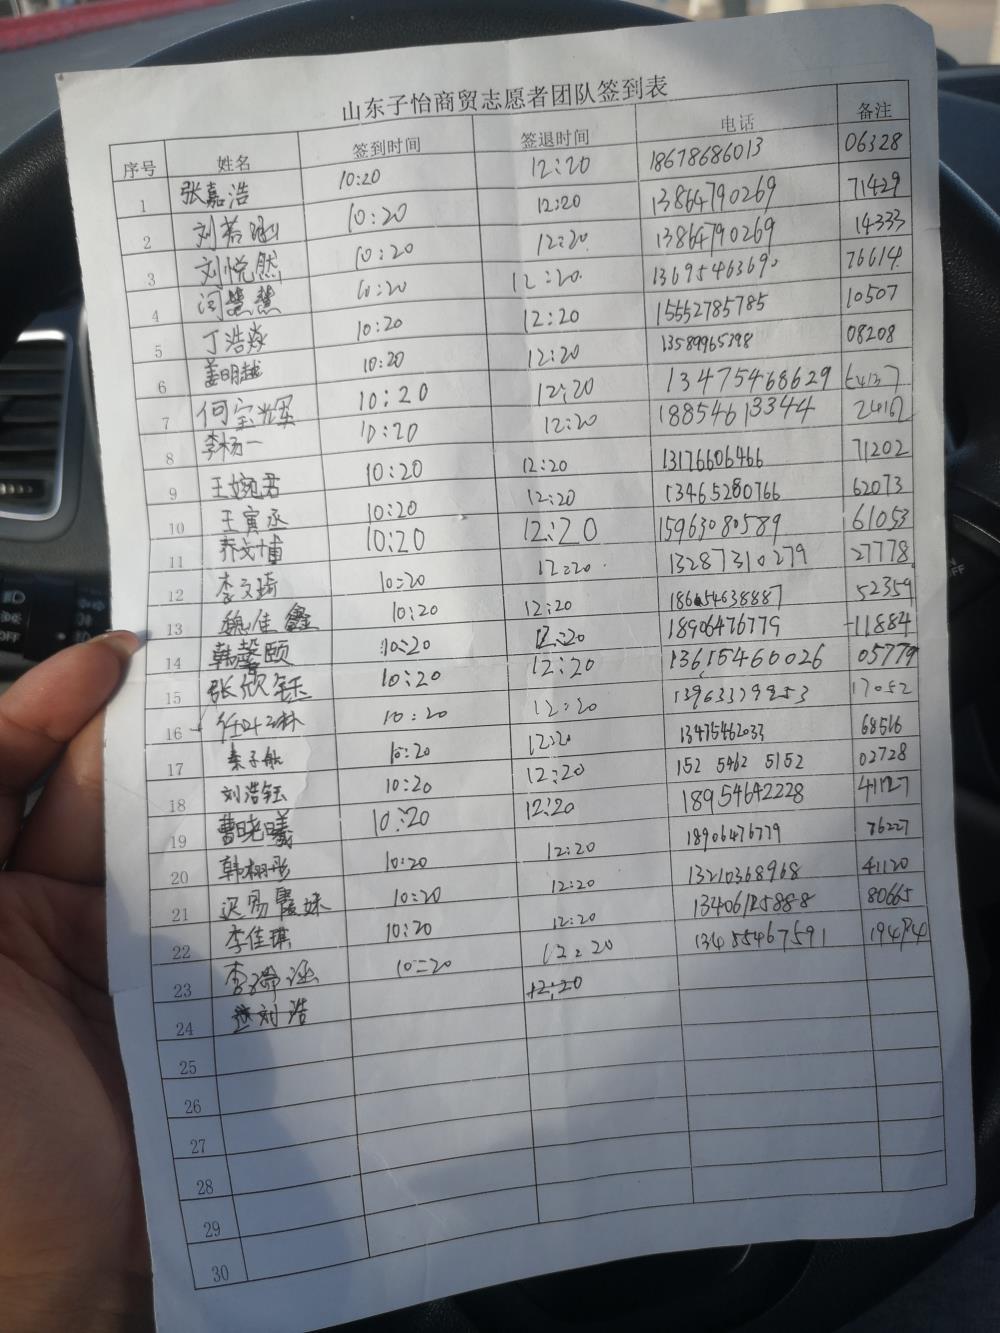 山东子怡商贸志愿者团队签到表
序号 姓名 签到时间 签退时间 电话 备注
1 张嘉浩 10:20 12:20 18678686013 06328
2 刘若 10:20 12:20 13864790269 71429
3 刘悦然 10:20 12:20 13864790269 14333
4 闫慧慧 10:20 12:20 76614
5 丁浩淼 10:20 12:20 15552785785 10507
6 姜明越 10:20 12:20 13589965398 08208
7 何宝辉 10:20 12:20 13475468629
8 李杨一 10:20 12:20 18854613344 24162
9 王婉君 10:20 12:20 13176606466 71202
10 王寅丞 10:20 12:20 13465280766 62073
11 10:20 12:20 15963080589 61053
12 李文琦 10:20 12:20 13287310279 27778
13 魏佳鑫 10:20 12:20 52359
14 韩馨颐 10:20 12:20 18906476779 11884
15 张欣钰 10:20 12:20 13615460026 05779
16 10:20 12:20 17052
17 秦子航 10:20 12:20 13475462033 68516
18 刘浩钰 10:20 12:20 152 5462 5152 02728
19 曹晓曦 10:20 12:20 18954642228
20 韩栩彤 10:20 12:20 18906476779 76227
21 10:20 12:20 13210368968 41120
22 李佳琪 10:20 12:20 13406125888 80665
23 10:20 12:20 13455467591 19494
24 刘浩 12:20
25
26
27
28
29
30